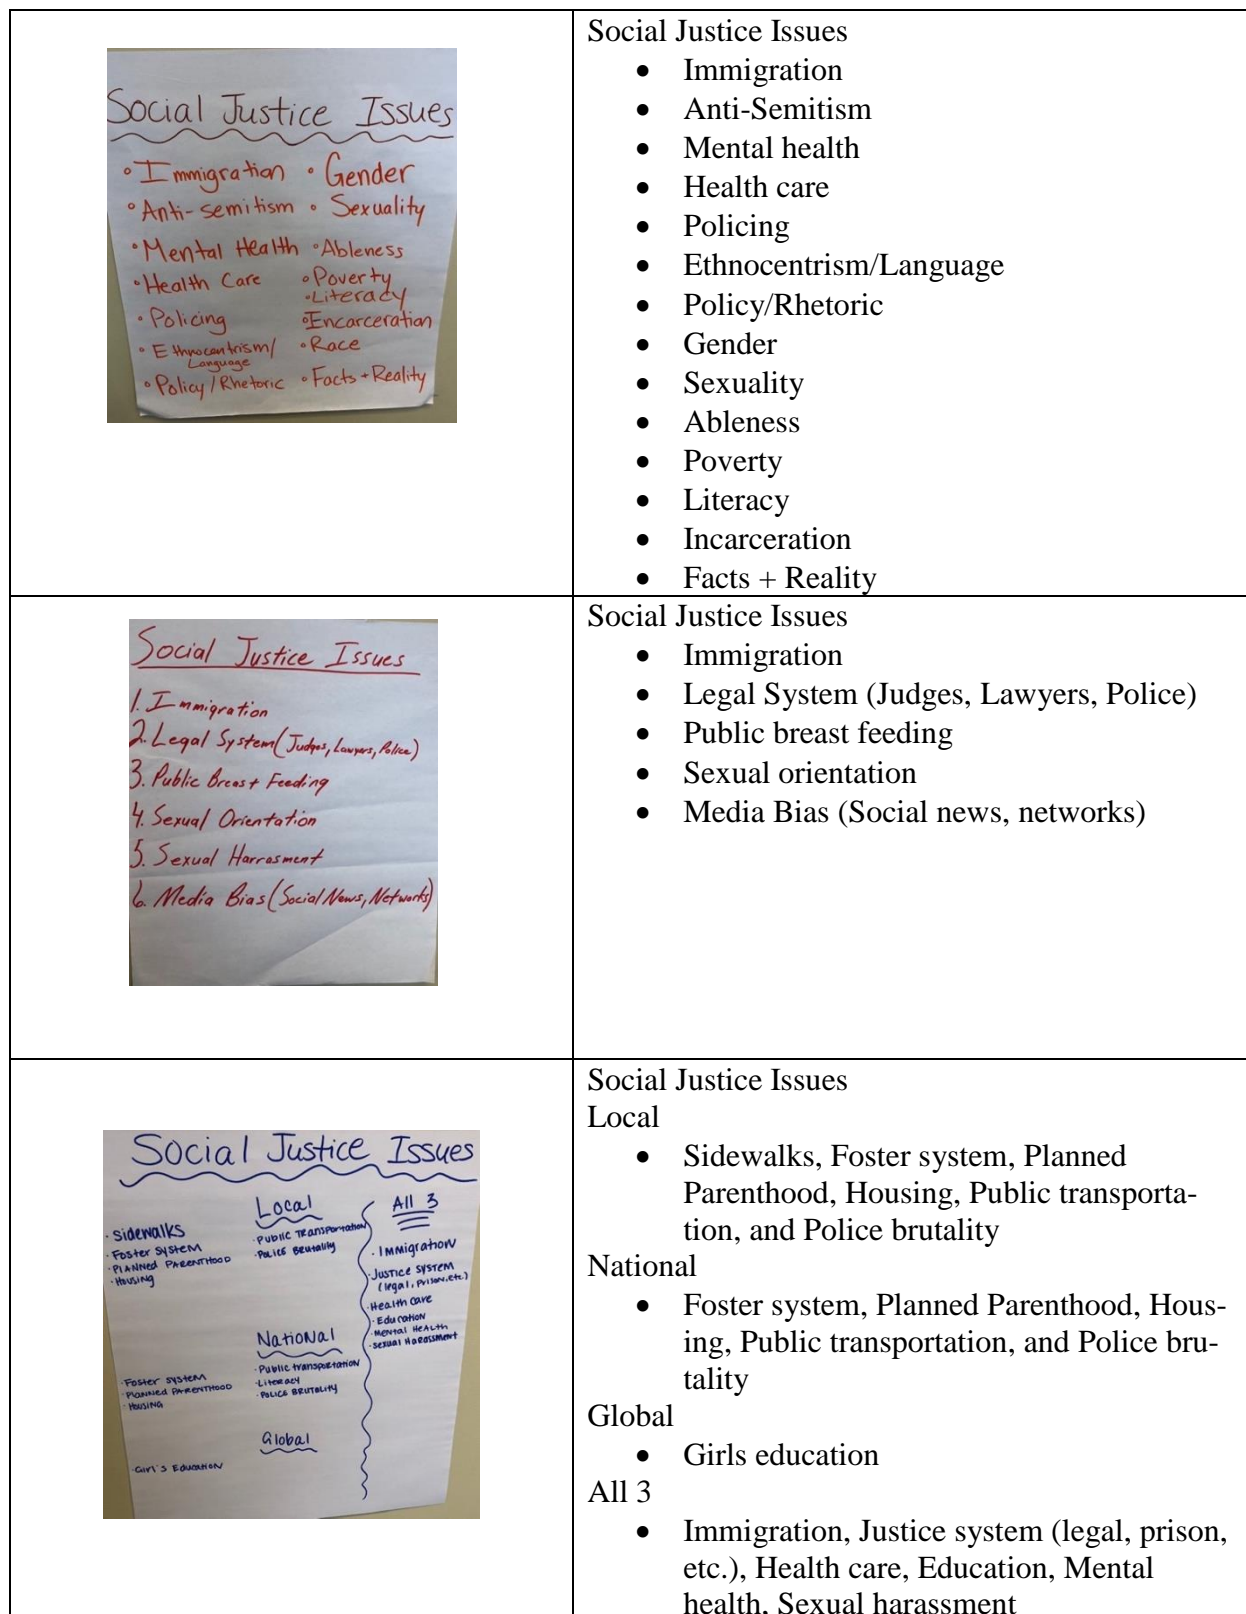 Social Justice Issues
• Immigration • Gender
• Anti-semitism • Sexuality
• Mental Health • Ableness
• Health Care • Poverty
• Literacy
• Policing • Incarceration
• Ethnocentrism/ • Race
Language
• Policy/Rhetoric • Facts + Reality
Social Justice Issues
• Immigration
• Anti-Semitism
• Mental health
• Health care
• Policing
• Ethnocentrism/Language
• Policy/Rhetoric
• Gender
• Sexuality
• Ableness
• Poverty
• Literacy
• Incarceration
• Facts + Reality
Social Justice Issues
1. Immigration
2. Legal System (Judges, Lawyers, Police)
3. Public Breast Feeding
4. Sexual Orientation
5. Sexual Harrasment
6. Media Bias (Social News, Networks)
Social Justice Issues
• Immigration
• Legal System (Judges, Lawyers, Police)
• Public breast feeding
• Sexual orientation
• Media Bias (Social news, networks)
Social Justice Issues
Local
• Sidewalks
• Foster System
• Planned Parenthood
• Housing
• Public Transportation
• Police Brutality
National
• Foster System
• Planned Parenthood
• Housing
• Public transportation
• Literacy
• Police Brutality
Global
• Girl's Education
All 3
• Immigration
• Justice System
(legal, prison, etc.)
• Health care
• Education
• Mental Health
• Sexual Harassment
Social Justice Issues
Local
• Sidewalks, Foster system, Planned
Parenthood, Housing, Public transporta-
tion, and Police brutality
National
• Foster system, Planned Parenthood, Hous-
ing, Public transportation, and Police bru-
tality
Global
• Girls education
All 3
• Immigration, Justice system (legal, prison,
etc.), Health care, Education, Mental
health, Sexual harassment